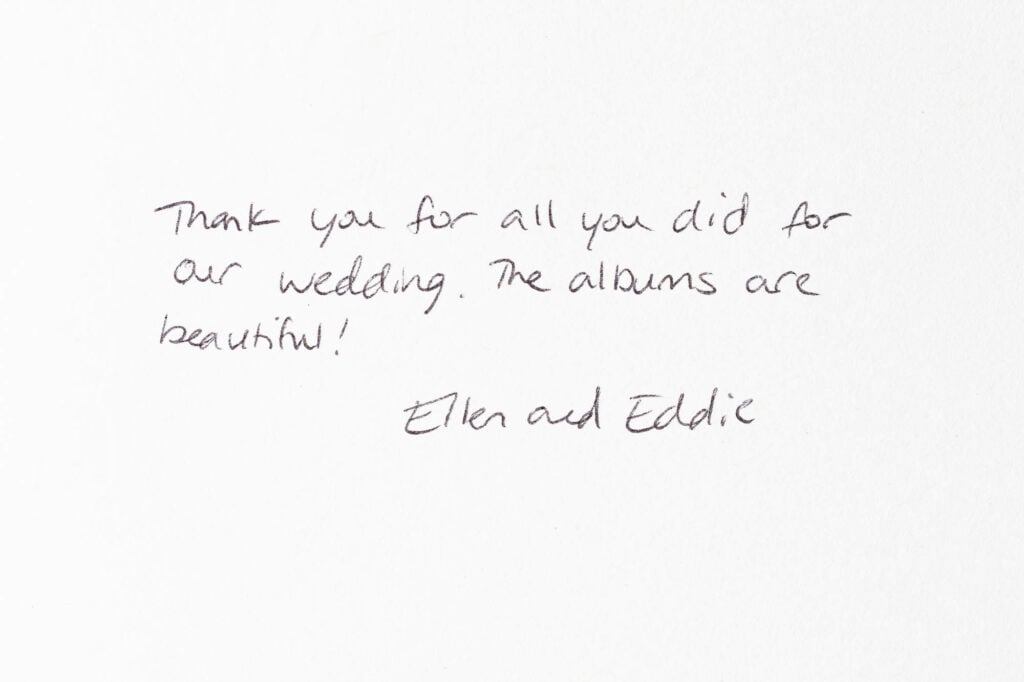 Thank you for all you did for
our wedding. The albums are
beautiful!
Ellen and Eddie